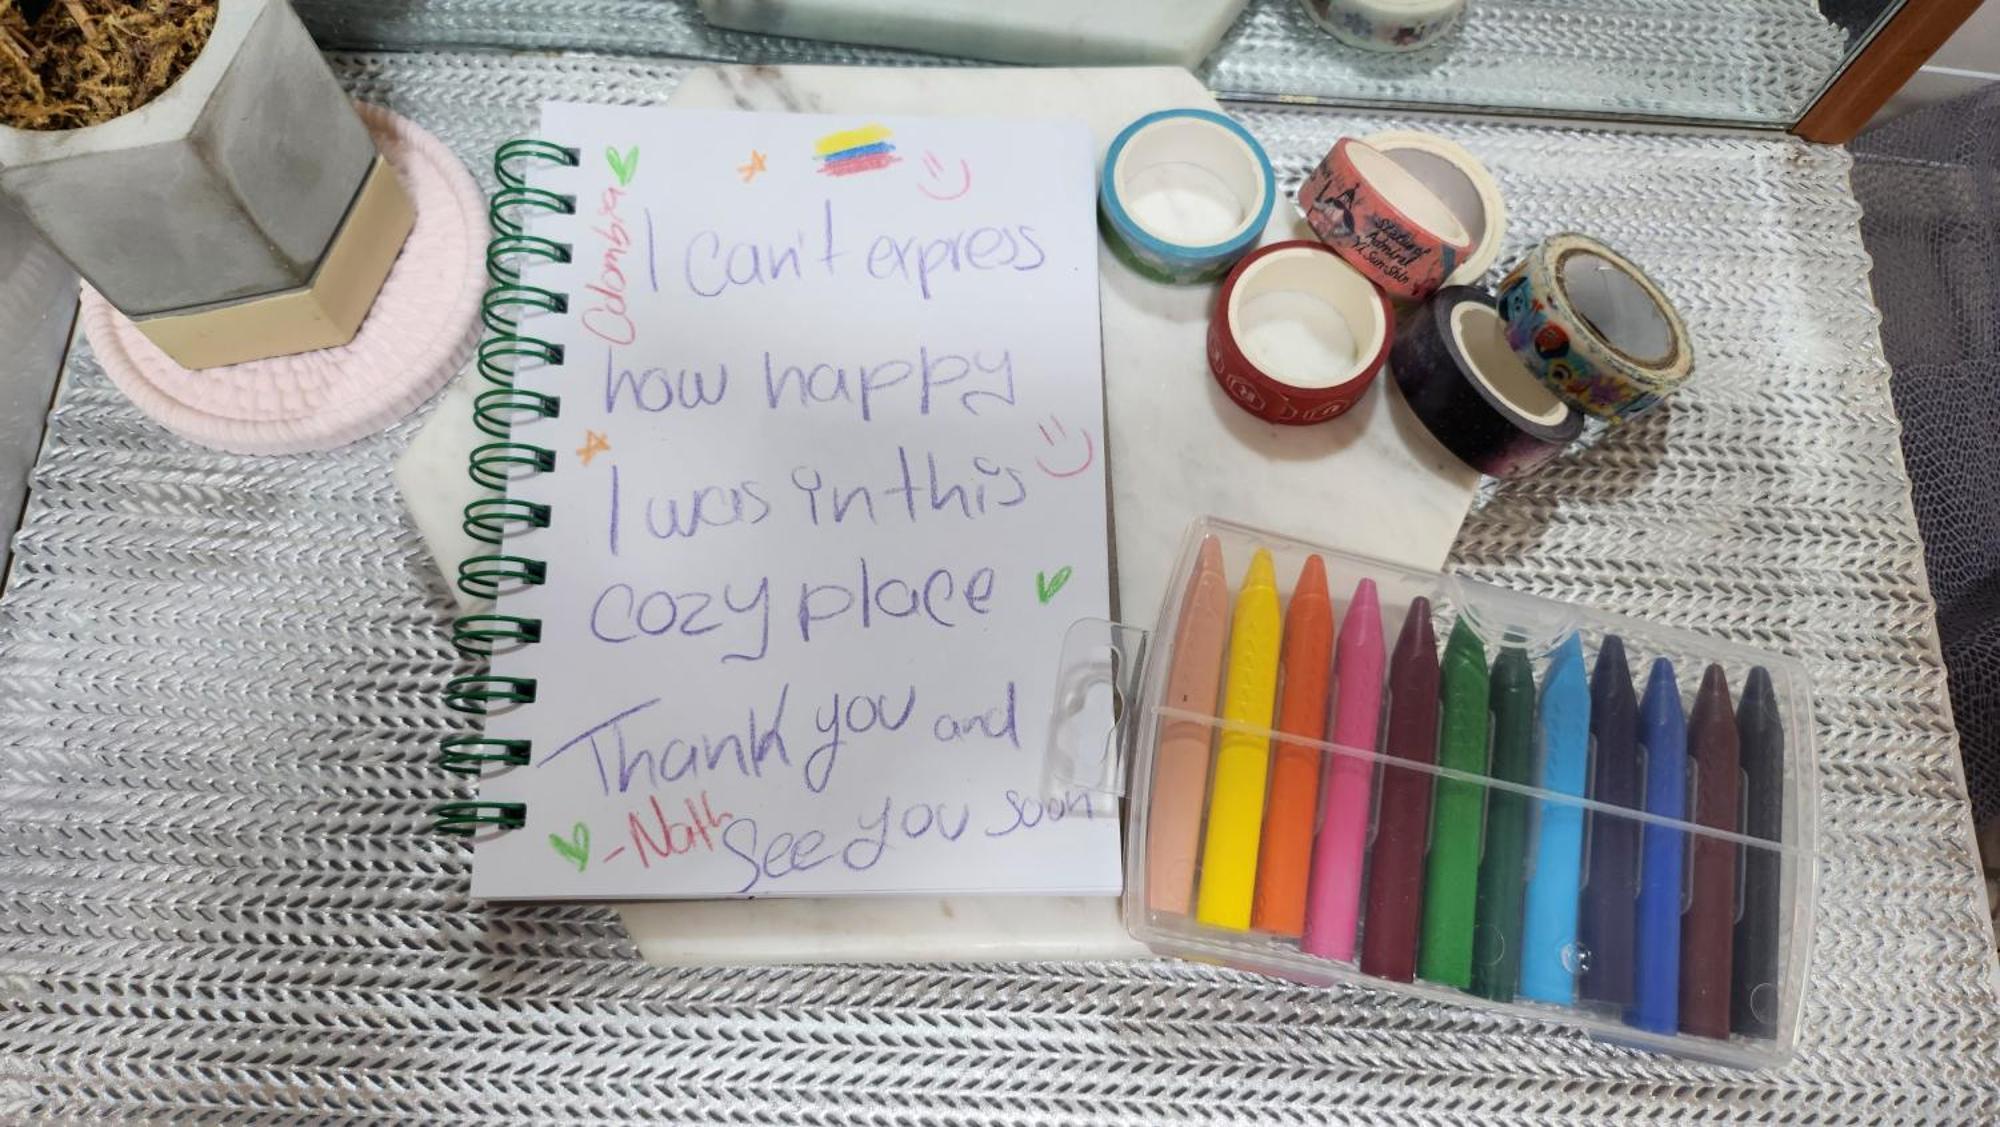 Colombia
I can't express
how happy
I was in this
cozy place
Thank you and
See you soon
-Nath
Statue of
Admiral
Yi Sun-Shin